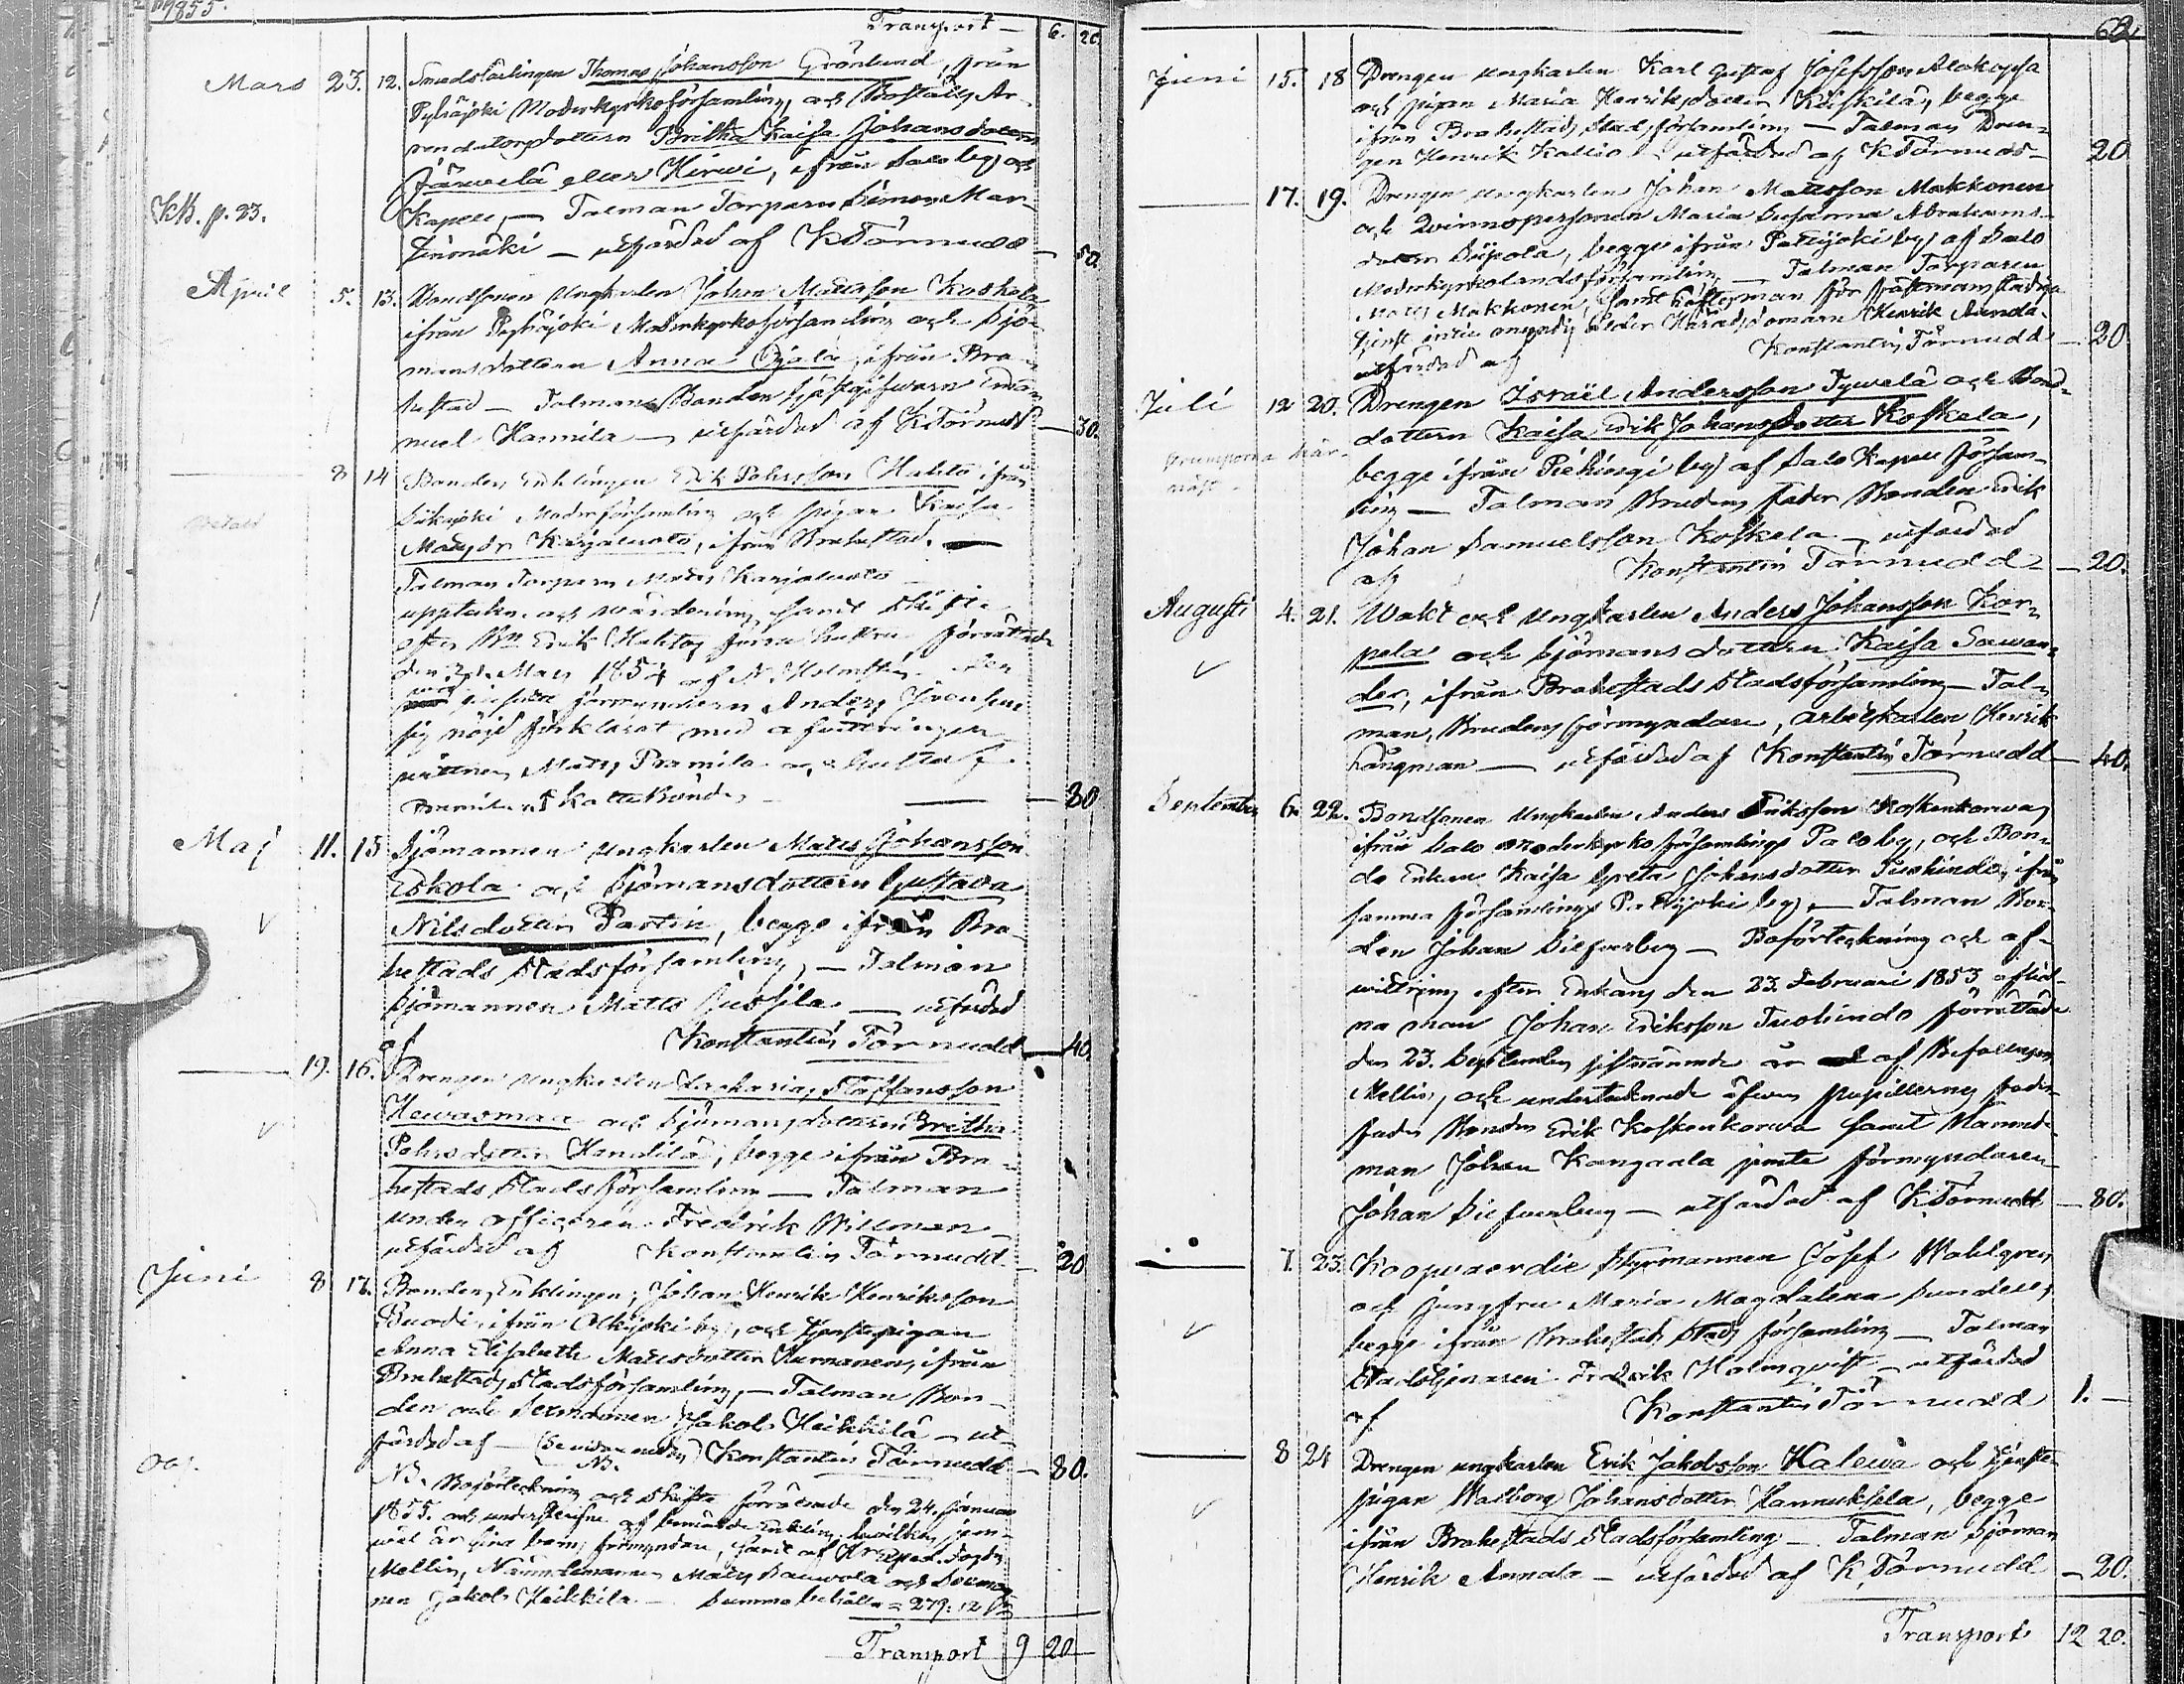 1855.
Transport — 6. 20.
Mars 23. 12. Smedslärlingen Thomas Johansson Grönlund, från
Pyhäjoki Moderkyrkoförsamling, och Boställs Ar-
rendatorsdottern Britha Kaisa Johansdotter
Järwelä eller Hirwi, ifrån Salo by och
KB. p. 23. Kapell, — Talman Torparn Simon Mar-
— utfärdad af K Törnudd — 50.
April 5. 13. Bondsonen Ungkarlen Johan Mattsson Koskela
ifrån Pyhäjoki Moderkyrkoförsamling och Sjö-
mansdottern Anna Ojala, ifrån Bra-
hestad — Talman Bonden Ema-
nuel Hannila — utfärdad af K Törnudd — 30.
8 14 Bonden Enklingen Erik Pehrsson Huhta ifrån
Siikajoki Moderförsamling och pigan Kaisa
Matsdr Karjaluoto, ifrån Brahestad. —
Talman Torparn Mats Karjaluoto —
upptekn. och wärdering samt skifte
efter Bn Erik Huhtas förra hustru förrättade
den Mars 1854 af N. Holmsten den
förmyndern Anders
sig nöjd förklarat med afwittringen
wittnen Mats Pramila och Gustaf
— 80
Maj 11. 15 Sjömannen Ungkarlen Matts Johansson
Eskola och Sjömansdottern Gustava
Nilsdotter Partin, begge ifrån Bra-
hestads Stadsförsamling, — Talman
Sjömannen Matts Jussila — utfärdad
af Konstantin Törnudd — 40.
19. 16. Drengen Ungkarlen Zacharias Staffansson
Hewasmaa och Sjömansdottern Britha
Pehrsdotter Hannila, begge ifrån Bra-
hestads Stadsförsamling — Talman
under officeren Fredrik Willman —
utfärdad af Konstantin Törnudd — 20
Juni 8 17. Bonden, Enklingen, Johan Henrik Henriksson
Ruodi, ifrån Olkijoki by, och tjenstepigan
Anna Elisabeth Mattsdotter Kurmanen, ifrån
Brahestads Stadsförsamling, — Talman Bon-
den och Sexmannen Jakob Heikkilä — ut-
färdad af — (Se widare nedan) Konstantin Törnudd — 80.
NB.
Obs. NB. Boförteckning och skifte förrättade den 24. Januari
1855. och underskrifne af bemälde Enkling, hwilken jem-
wäl är sina barns förmyndare, samt af
Mellin, Nämndemannen Mats Sauwola och Sexman-
nen Jakob Heikkilä — Summa behålln = 279: 12
Transport 9 20
62
Juni 15. 18 Drengen Ungkarlen Karl Gustaf Josefsson Alakopsa
och pigan Maria Henriksdotter Kuiskila, begge
ifrån Brahestads Stadsförsamling — Talman Dren-
gen Henrik Kallio — utfärdad af K Törnudd — 20
17. 19. Drengen Ungkarlen Johan Mattsson Makkonen
och Qvinnspersonen Maria Susanna Abrahams-
dotter Siipola, begge ifrån Pattijoki by af Salo
Moderkyrkolandsförsamling — Talman Torparen
Mats Makkonen, samt
Häradsdomarn Henrik
utfärdad af Konstantin Törnudd — 20
Juli 12 20. Drengen Israël Andersson Tywelä och Bond-
dottern Kaisa Erik Johansdotter Koskela,
begge ifrån Piehingi by af Salo Kapell försam-
ling — Talman Brudens fader Bonden Erik
Johan Samuelsson Koskela — utfärdad
af Konstantin Törnudd — 20.
Augusti 4. 21. Wakt och Ungkarlen Anders Johansson Kor-
pela och Sjömansdottern Kaisa Sawan-
der, ifrån Brahestads Stadsförsamling — Tal-
man, Brudens förmyndare, arbetskarlen Henrik
Långman — utfärdad af Konstantin Törnudd — 40.
September 6. 22. Bondsonen Ungkarlen Anders Eriksson Koskenkorwa,
ifrån Salo Moderkyrkoförsamlings Palo by, och Bon-
de Enkan Kaisa Greta Johansdotter Tuohindo, ifrån
samma församlings Pattijoki by, — Talman Bon-
den Johan Silfverberg — Boförteckning och af-
wittring efter Enkans den 23. Februari 1853 aflid-
na man Johan Eriksson Tuohindo förrättade
den 23. September sistnämnde år af Befallngsm.
Mellin, och undertecknade äfwen pupillernas fader-
fader Bonden Erik Koskenkorwa samt Nämnde-
man Johan Kangasla jemte förmyndaren
Johan Silfverberg — utfärdad af K Törnudd — 80.
7. 23. Koopvaerdie Styrmannen Josef Wahlgren
och Jungfru Maria Magdalena Sundell,
begge ifrån Brahestads Stads församling — Talman
Stadstjenaren Fredrik Holmqvist — utfärdad
af Konstantin Törnudd 1. —
8 24 Drengen ungkarlen Erik Jakobsson Kalewa och tjenste-
pigan Walborg Johansdotter Hannuksela, begge
ifrån Brahestads Stadsförsamling — Talman Sjöman
Henrik Annala — utfärdad af K. Törnudd — 20.
Transport 12 20.